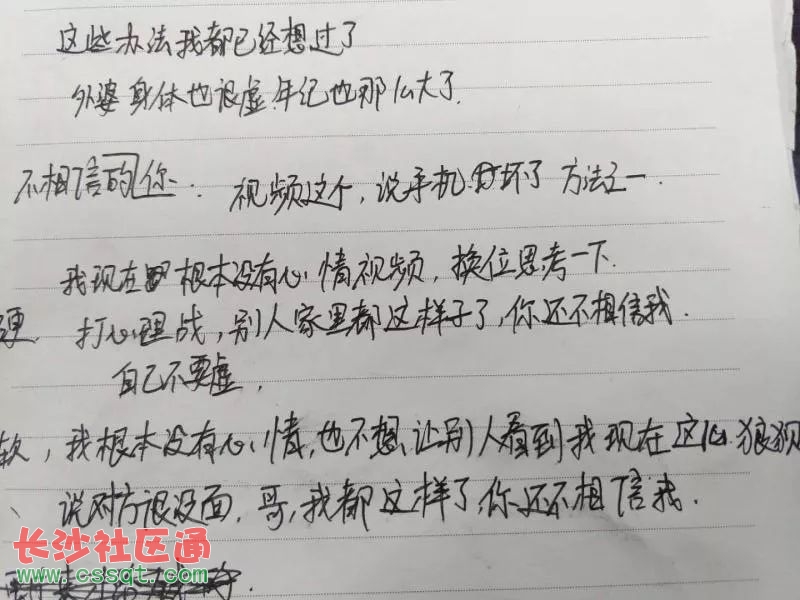 这些办法我都已经想过了
外婆身体也很虚.年纪也那么大了.
不相信的你. 视频这个,说手机坏了 方法之一.
我现在根本没有心情视频,换位思考一下.
硬. 打心理战,别人家里都这样子了,你还不相信我.
自己不要虚.
软,我根本没有心情,也不想让别人看到我现在这么狼狈
、说对方很没面,哥,我都这样了,你还不相信我.
长沙社区通
www.cssqt.com